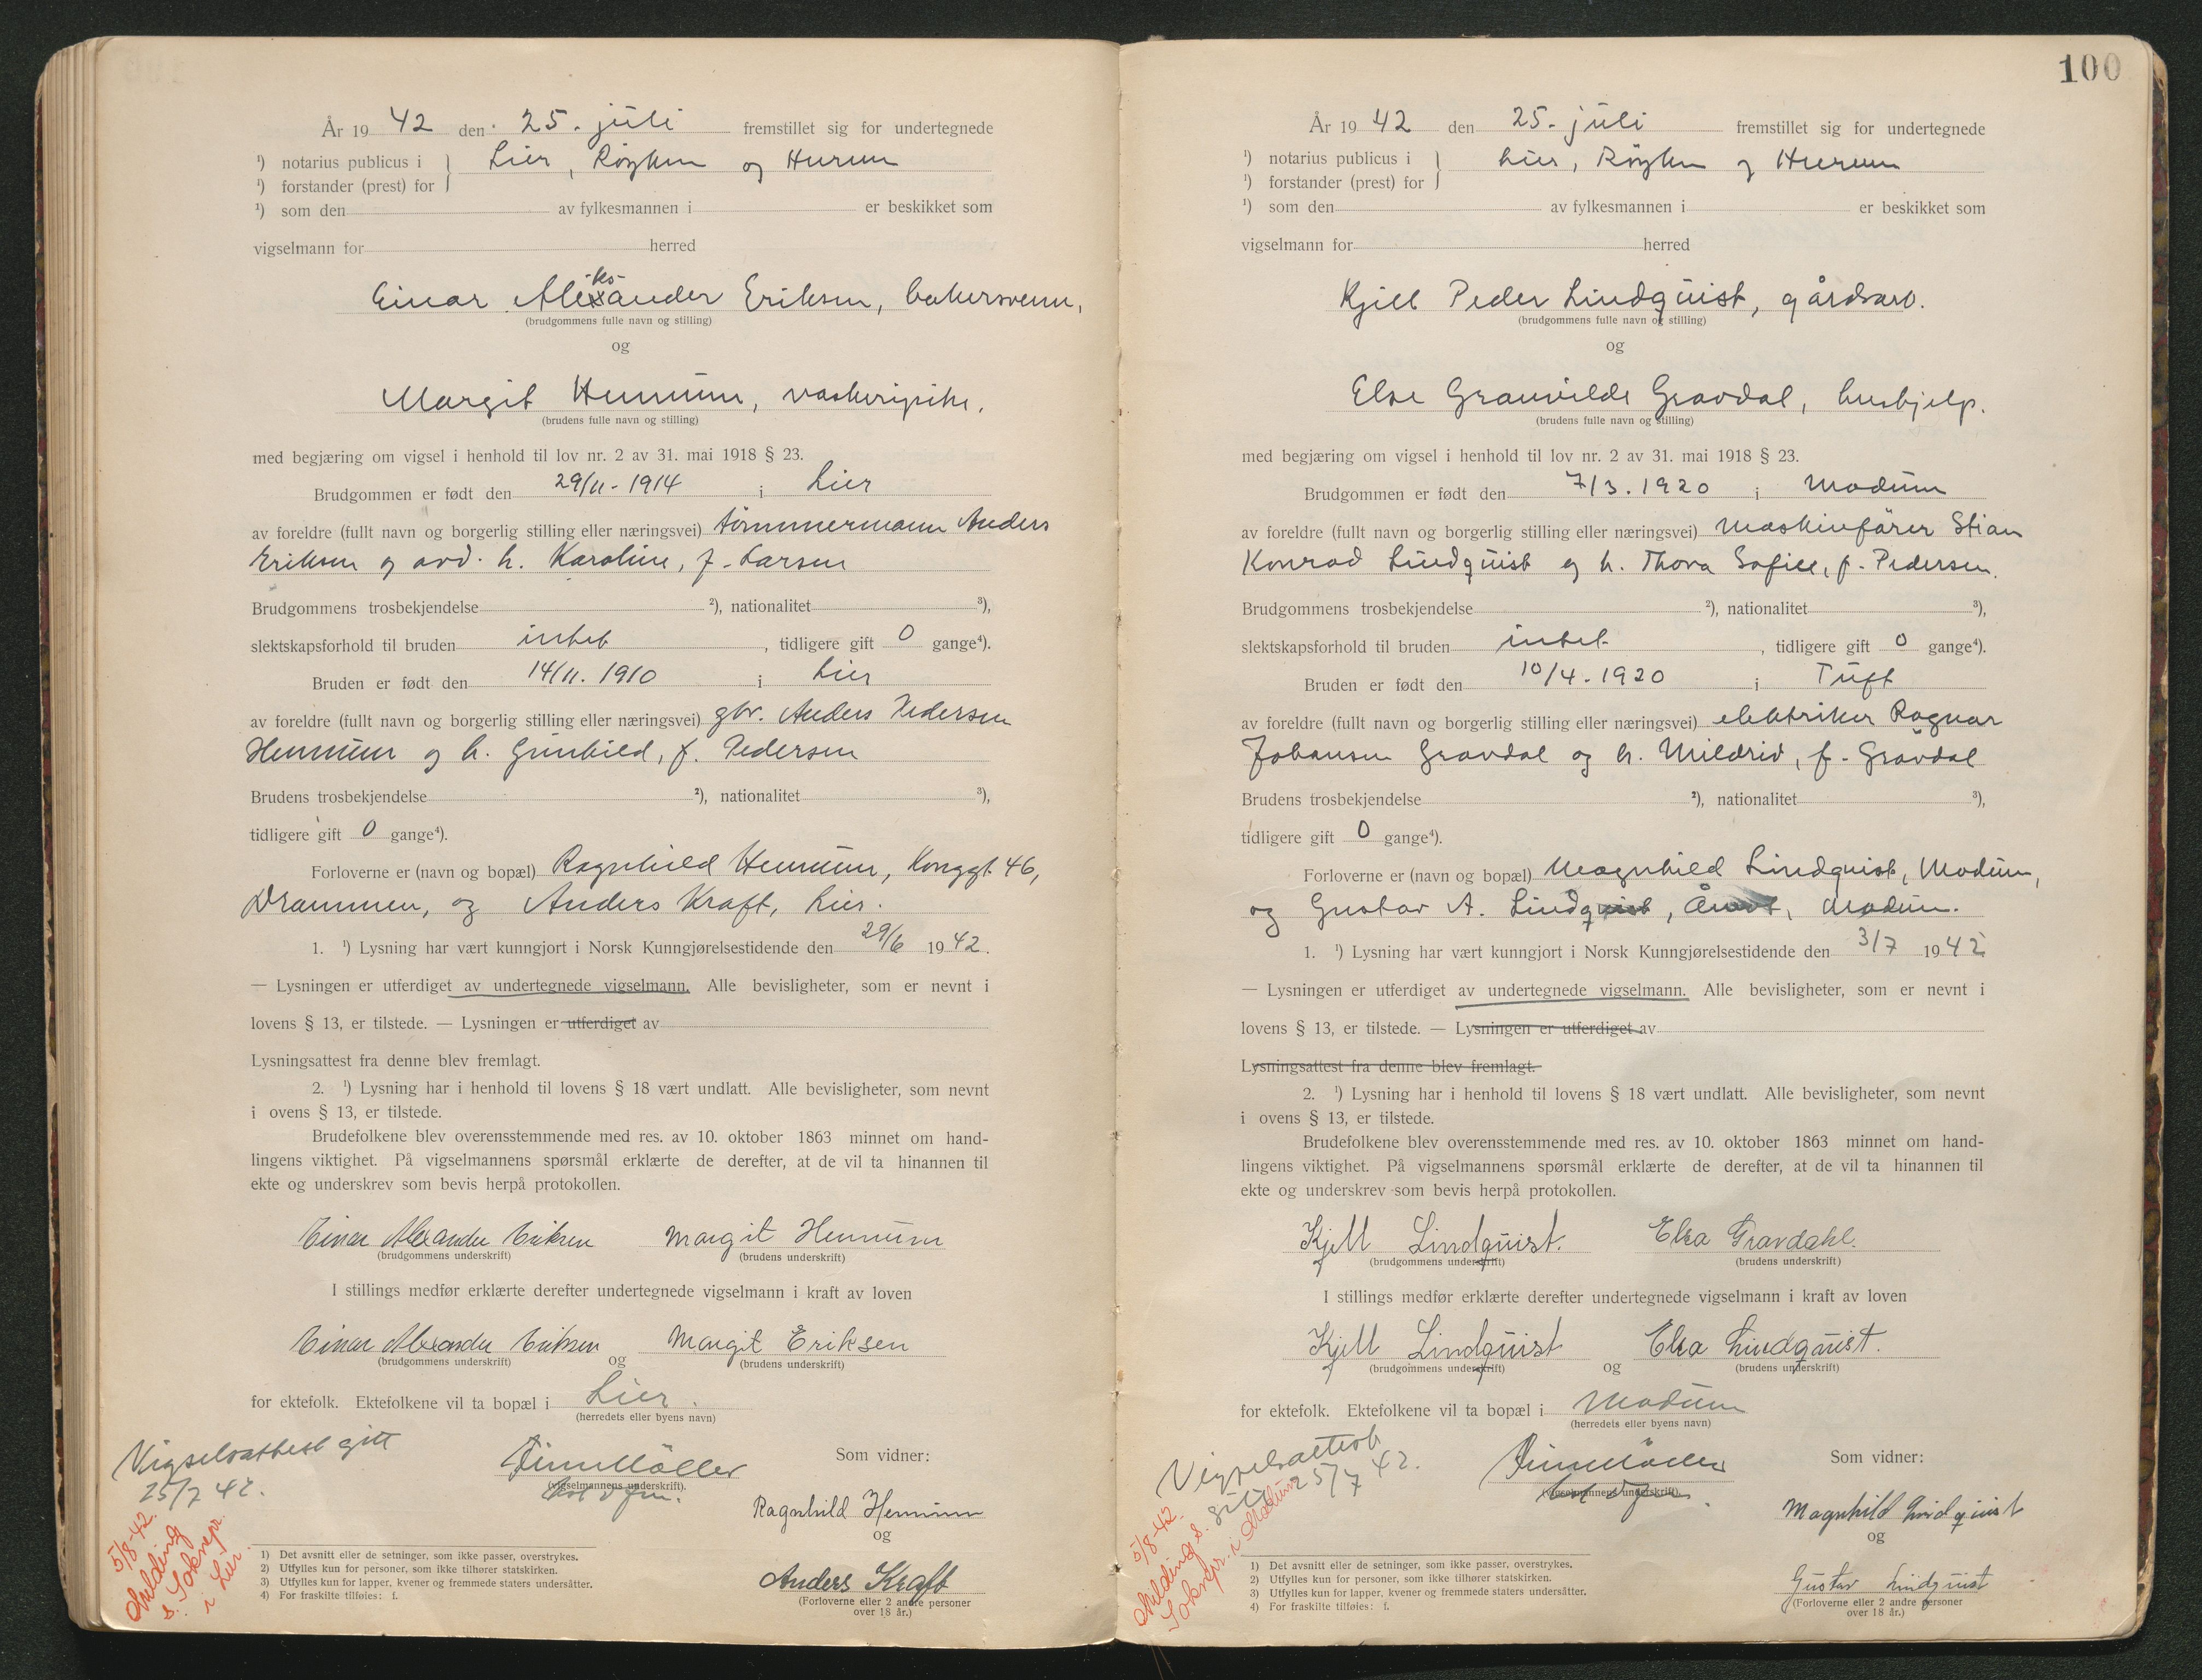 År 1942 den 25. juli fremstillet sig for undertegnede
¹) notarius publicus i } Lier, Røyken og Hurum
¹) forstander (prest) for
¹) som den av fylkesmannen i er beskikket som
vigselmann for herred
ks
Einar Alexander Eriksen, bakersvenn,
(brudgommens fulle navn og stilling)
og
Margit Hennum, vaskeripike.
(brudens fulle navn og stilling)
med begjæring om vigsel i henhold til lov nr. 2 av 31. mai 1918 § 23.
Brudgommen er født den 29/11-1914 i Lier
av foreldre (fullt navn og borgerlig stilling eller næringsvei) tømmermann Anders
Eriksen og avd. h. Karoline, f. Larsen
Brudgommens trosbekjendelse ²), nationalitet ³),
slektskapsforhold til bruden intet, tidligere gift 0 gange⁴).
Bruden er født den 14/11. 1910 i Lier
av foreldre (fullt navn og borgerlig stilling eller næringsvei) gbr. Anders Pedersen
Hennum og h. Gunhild, f. Pedersen
Brudens trosbekjendelse ²), nationalitet ³),
tidligere gift 0 gange⁴).
Forloverne er (navn og bopæl) Ragnhild Hennum, Konggt. 46,
Drammen, og Anders Kraft, Lier.
1. ¹) Lysning har vært kunngjort i Norsk Kunngjørelsestidende den 29/6 1942.
— Lysningen er utferdiget av undertegnede vigselmann. Alle bevisligheter, som er nevnt i
lovens § 13, er tilstede. — Lysningen er utferdiget av
Lysningsattest fra denne blev fremlagt.
2. ¹) Lysning har i henhold til lovens § 18 vært undlatt. Alle bevisligheter, som nevnt
i ovens § 13, er tilstede.
Brudefolkene blev overensstemmende med res. av 10. oktober 1863 minnet om hand-
lingens viktighet. På vigselmannens spørsmål erklærte de derefter, at de vil ta hinannen til
ekte og underskrev som bevis herpå protokollen.
Einar Alexander Eriksen Margit Hennum
(brudgommens underskrift) (brudens underskrift)
I stillings medfør erklærte derefter undertegnede vigselmann i kraft av loven
Einar Alexander Eriksen og Margit Eriksen
(brudgommens underskrift) (brudens underskrift)
for ektefolk. Ektefolkene vil ta bopæl i Lier.
(herredets eller byens navn)
Vigselsattest gitt
25/7 42.
Finn Møller
(vigselmannens underskrift).
Som vidner:
Ragnhild Hennum
og
Anders Kraft
(Forloverne eller 2 andre personer
over 18 år.)
5/8-42.
Melding
s. Soknepr.
i Lier.
1) Det avsnitt eller de setninger, som ikke passer, overstrykes.
2) Utfylles kun for personer, som ikke tilhører statskirken.
3) Utfylles kun for lapper, kvener og fremmede staters undersåtter.
4) For fraskilte tilføies: f.
100
År 1942 den 25. juli fremstillet sig for undertegnede
¹) notarius publicus i } Lier, Røyken og Hurum
¹) forstander (prest) for
¹) som den av fylkesmannen i er beskikket som
vigselmann for herred
Kjell Peder Lindquist, gårdsarb.
(brudgommens fulle navn og stilling)
og
Else Granvilde Gravdal, hushjelp.
(brudens fulle navn og stilling)
med begjæring om vigsel i henhold til lov nr. 2 av 31. mai 1918 § 23.
Brudgommen er født den 7/3. 1920 i Modum
av foreldre (fullt navn og borgerlig stilling eller næringsvei) maskinfører Stian
Konrad Lindquist og h. Thora Sofie, f. Pedersen.
Brudgommens trosbekjendelse ²), nationalitet ³),
slektskapsforhold til bruden intet, tidligere gift 0 gange⁴).
Bruden er født den 10/4. 1920 i Tuft
av foreldre (fullt navn og borgerlig stilling eller næringsvei) elektriker Ragnar
Johansen Gravdal og h. Mildrid, f. Gravdal
Brudens trosbekjendelse ²), nationalitet ³),
tidligere gift 0 gange⁴).
Forloverne er (navn og bopæl) Magnhild Lindquist, Modum,
og Gustav A. Lindquist, Modum.
1. ¹) Lysning har vært kunngjort i Norsk Kunngjørelsestidende den 3/7 1942
— Lysningen er utferdiget av undertegnede vigselmann. Alle bevisligheter, som er nevnt i
lovens § 13, er tilstede. — Lysningen er utferdiget av
Lysningsattest fra denne blev fremlagt.
2. ¹) Lysning har i henhold til lovens § 18 vært undlatt. Alle bevisligheter, som nevnt
i ovens § 13, er tilstede.
Brudefolkene blev overensstemmende med res. av 10. oktober 1863 minnet om hand-
lingens viktighet. På vigselmannens spørsmål erklærte de derefter, at de vil ta hinannen til
ekte og underskrev som bevis herpå protokollen.
Kjell Lindquist. Elsa Gravdahl.
(brudgommens underskrift) (brudens underskrift)
I stillings medfør erklærte derefter undertegnede vigselmann i kraft av loven
Kjell Lindquist og Elsa Lindquist.
(brudgommens underskrift) (brudens underskrift)
for ektefolk. Ektefolkene vil ta bopæl i Modum
(herredets eller byens navn)
Vigselsattest
gitt 25/7 42.
Finn Møller
(vigselmannens underskrift).
Som vidner:
Magnhild Lindquist
og
Gustav Lindquist
(Forloverne eller 2 andre personer
over 18 år.)
5/8-42.
Melding s.
Soknepr. i Modum
1) Det avsnitt eller de setninger, som ikke passer, overstrykes.
2) Utfylles kun for personer, som ikke tilhører statskirken.
3) Utfylles kun for lapper, kvener og fremmede staters undersåtter.
4) For fraskilte tilføies: f.